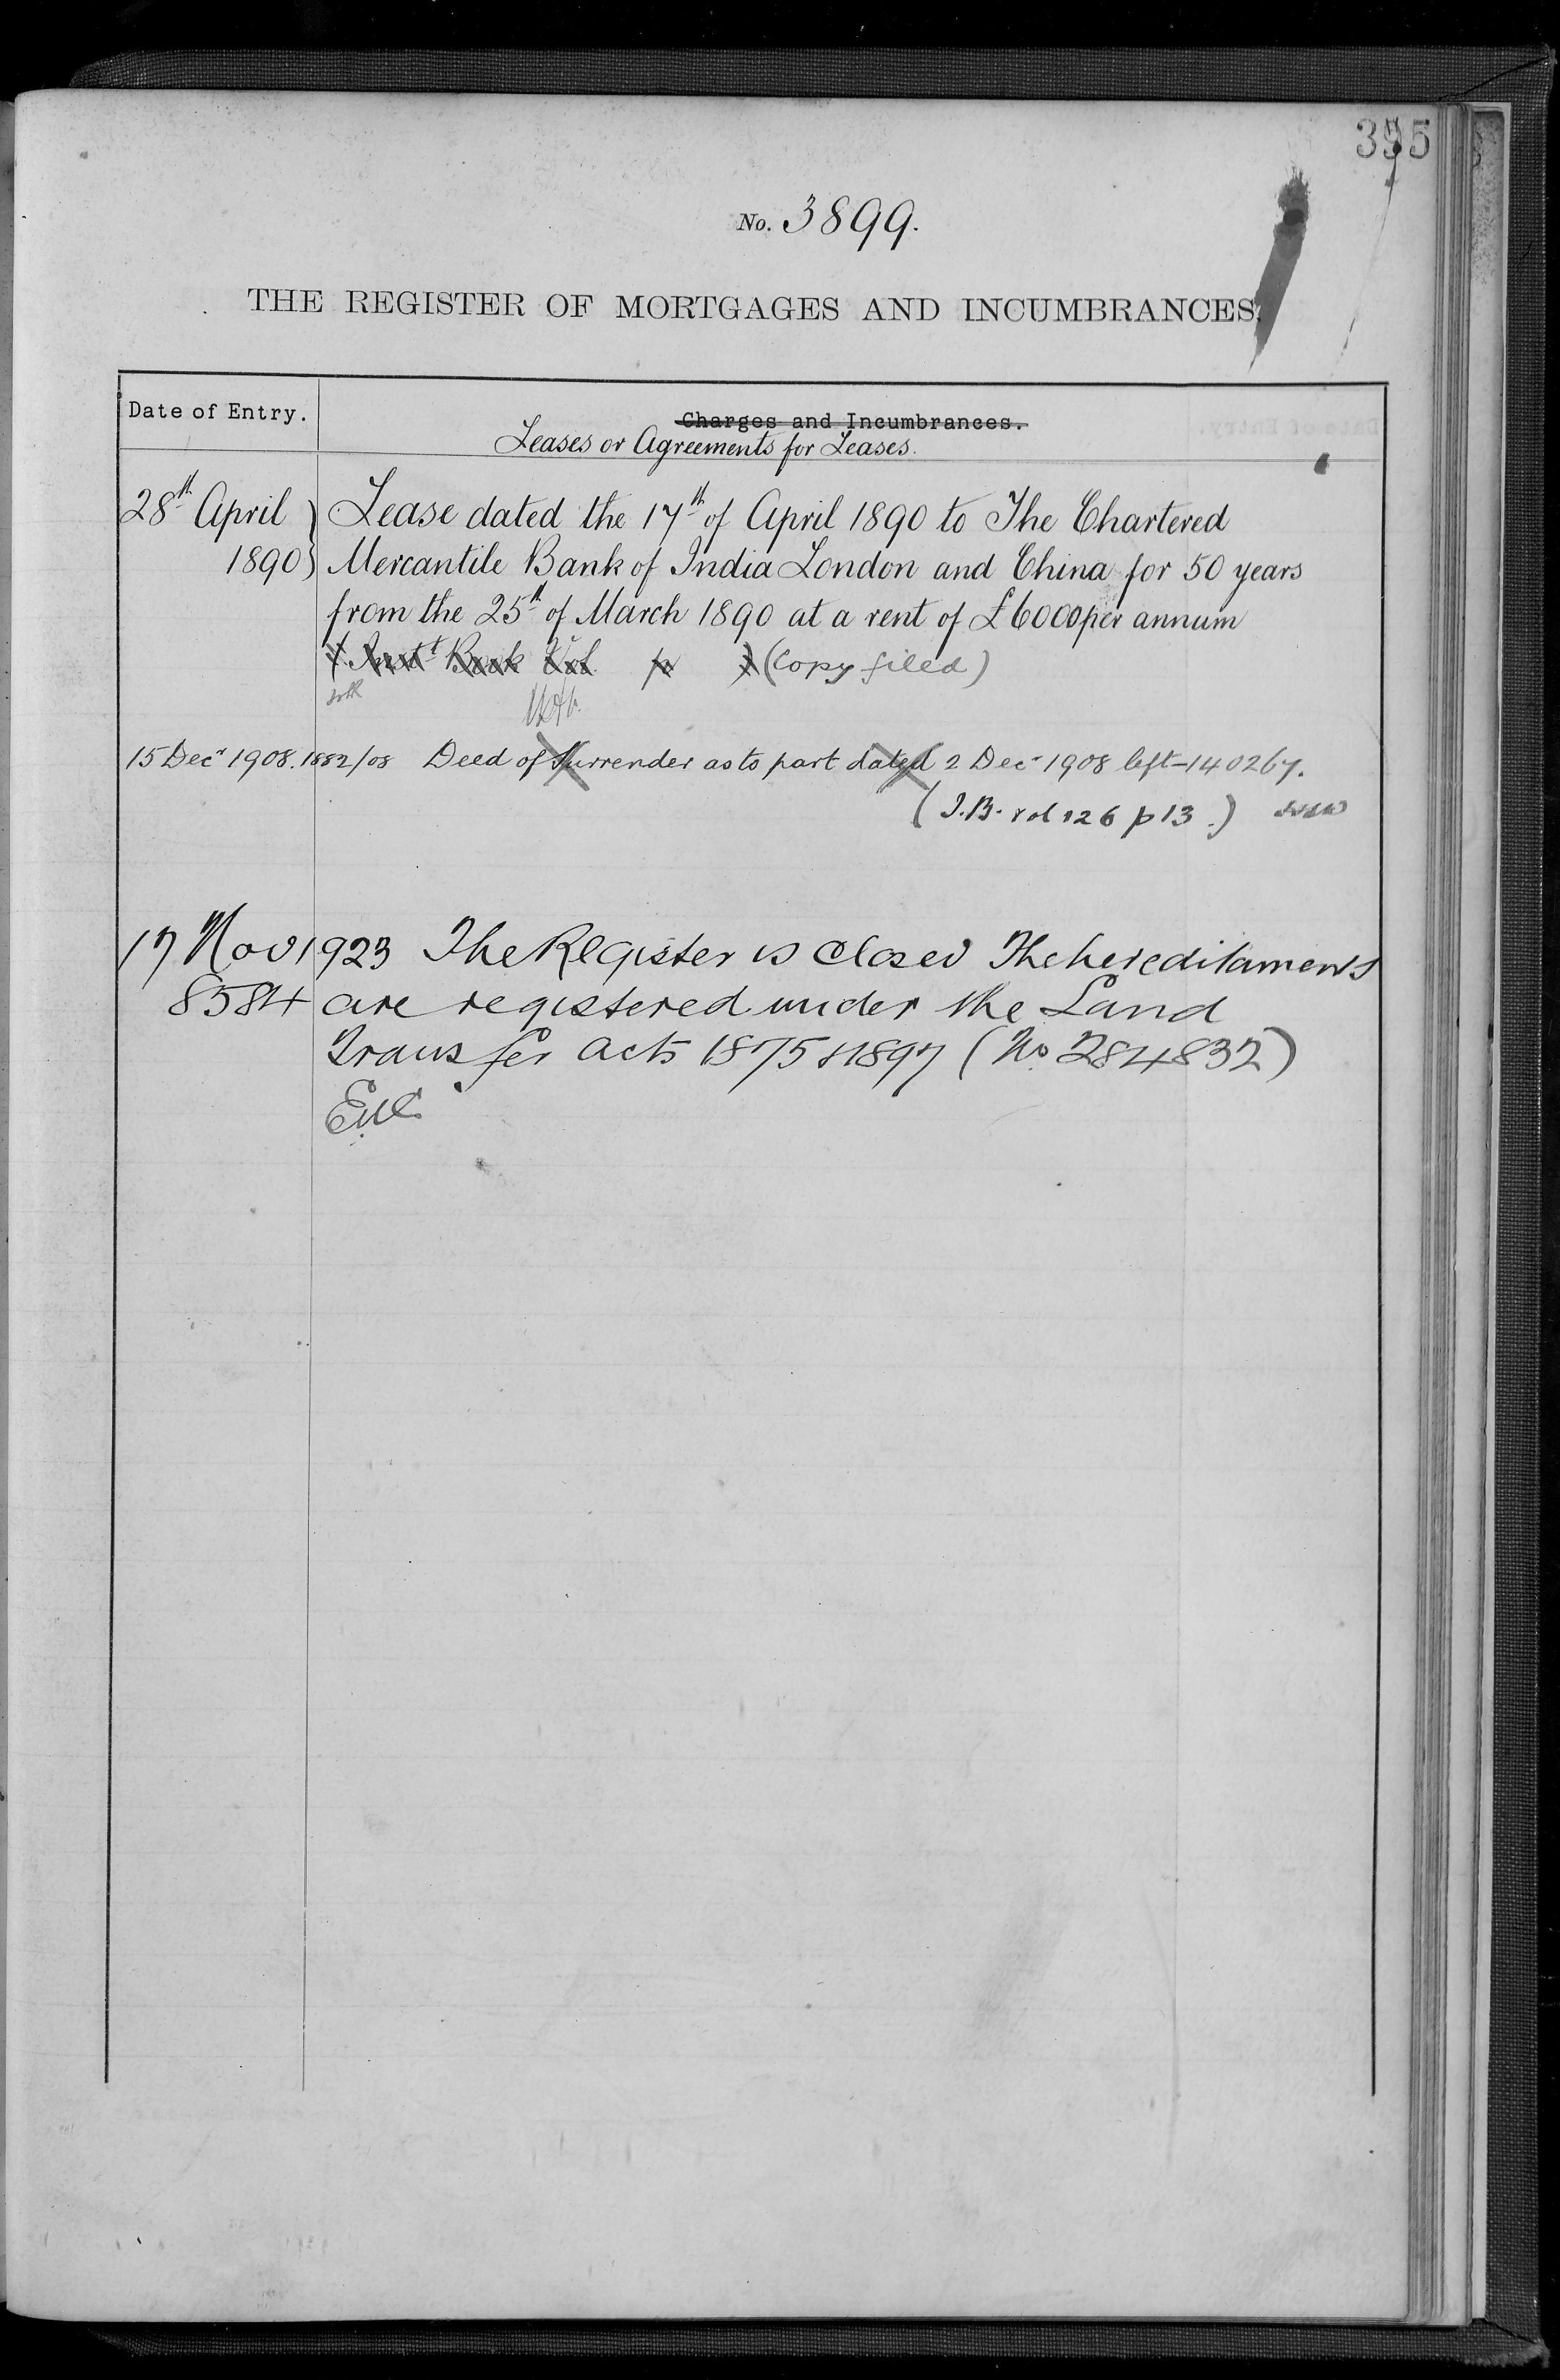 No. 3899.
THE REGISTER OF MORTGAGES AND INCUMBRANCES.
Date of Entry.
Charges and Incumbrances.
Leases or Agreements for Leases.
28th April Lease dated the 17th of April 1890 to The Chartered
1890 Mercantile Bank of India London and China for 50 years
from the 25th of March 1890 at a rent of £6000 per annum
(Inst Book Vol p ) (Copy filed)
15 Decr 1908. 1882/08 Deed of Surrender as to part dated 2 Decr 1908 left 140267.
(I.B. vol 126 p 13.)
17 Nov 1923 The Register is closed The hereditaments
8584 are registered under the Land
Transfer Acts 1875 & 1897 (No 284832)